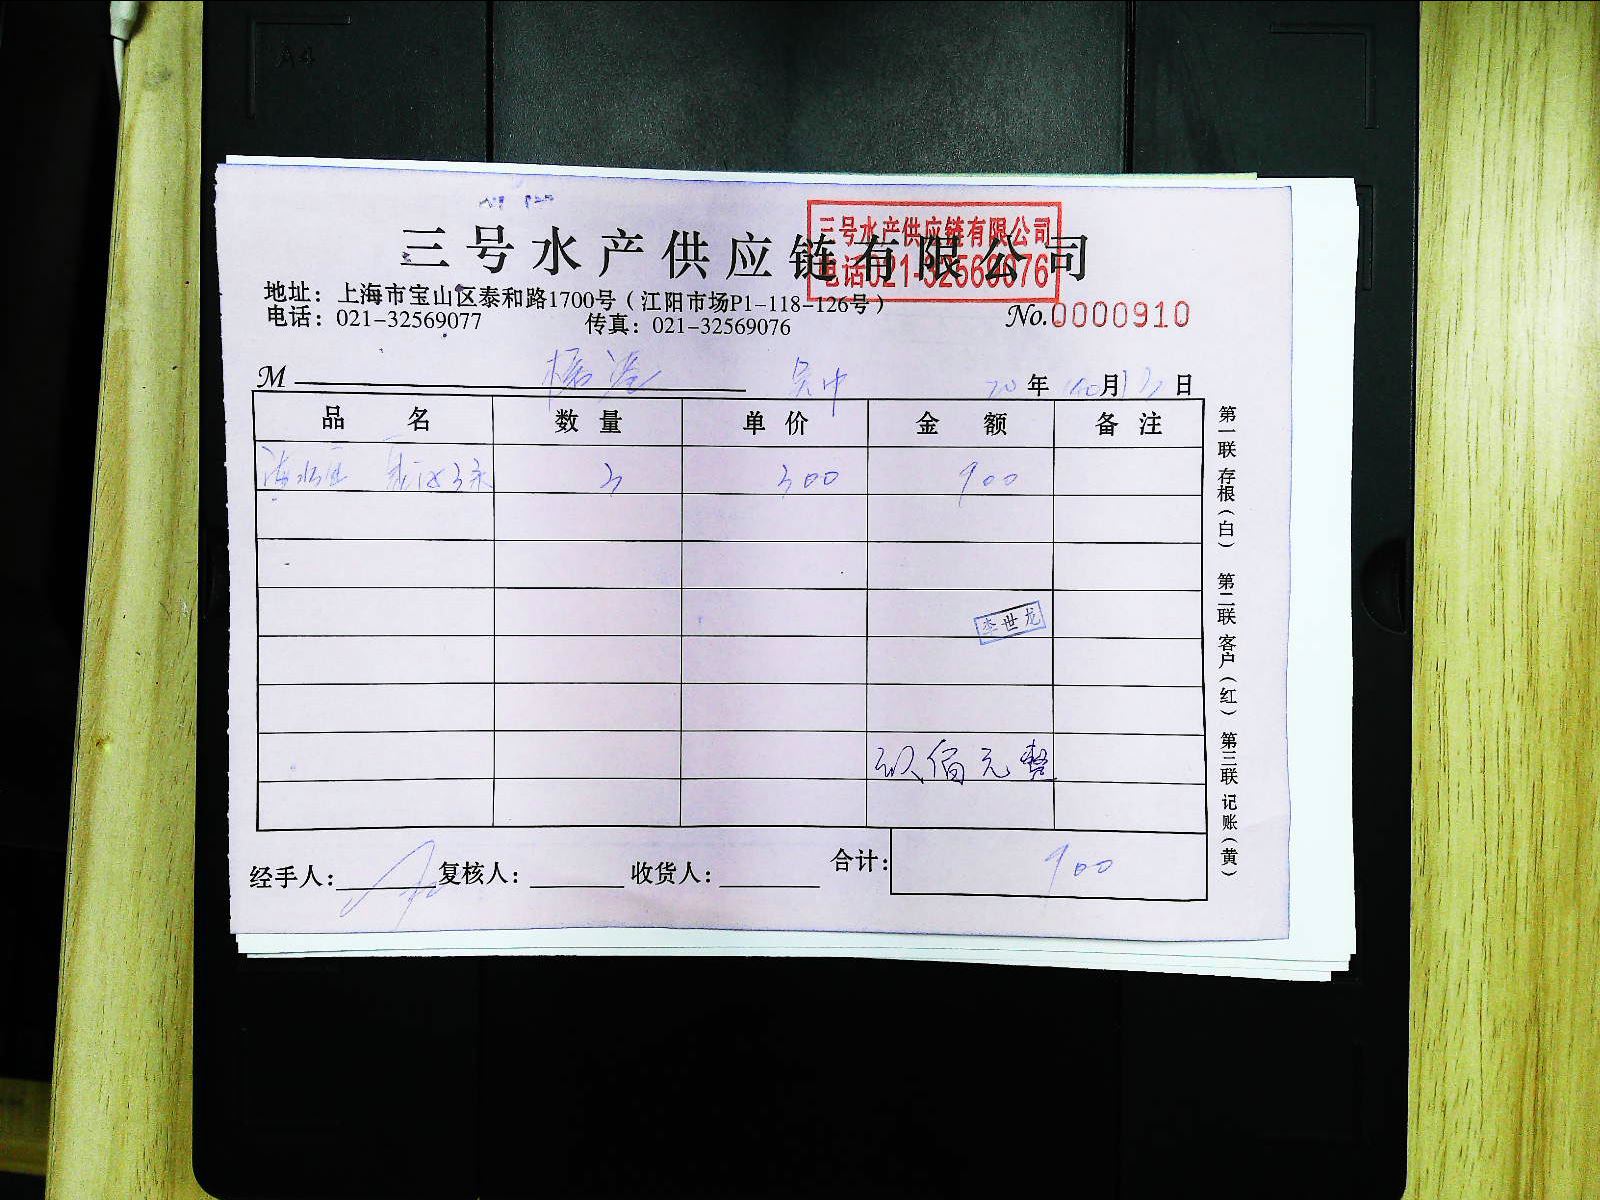 三号水产供应链有限公司
三号水产供应链有限公司
电话021-32569076
地址：上海市宝山区泰和路1700号（江阳市场P1-118-126号）
电话：021-32569077 传真：021-32569076
No.0000910
M 杨浩 吴中 20年 10月13日
品名 数量 单价 金额 备注
3 300 900
李世龙
玖佰元整
经手人： 复核人： 收货人： 合计： 900
第一联 存根（白） 第二联 客户（红） 第三联 记账（黄）
A4